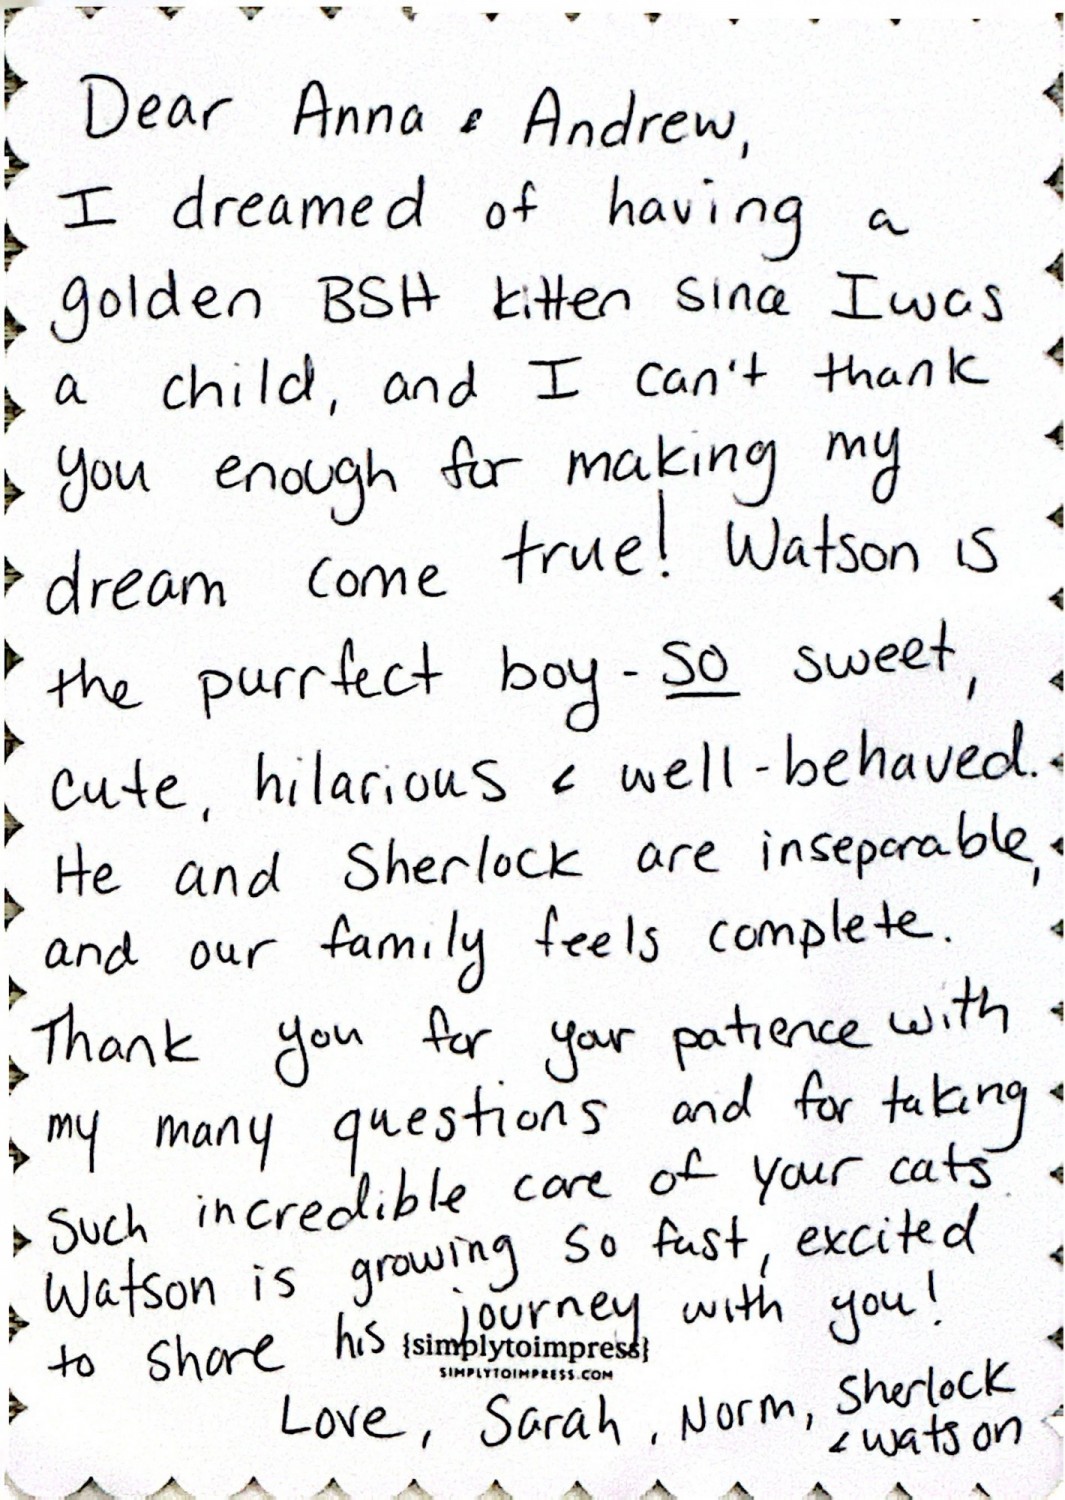 Dear Anna & Andrew,
I dreamed of having a
golden BSH kitten since I was
a child, and I can't thank
you enough for making my
dream come true! Watson is
the purrfect boy - SO sweet,
cute, hilarious & well-behaved.
He and Sherlock are inseparable,
and our family feels complete.
Thank you for your patience with
my many questions and for taking
such incredible care of your cats.
Watson is growing so fast, excited
to share his journey with you!
{simplytoimpress}
SIMPLYTOIMPRESS.COM
Love, Sarah, Norm, Sherlock
& Watson